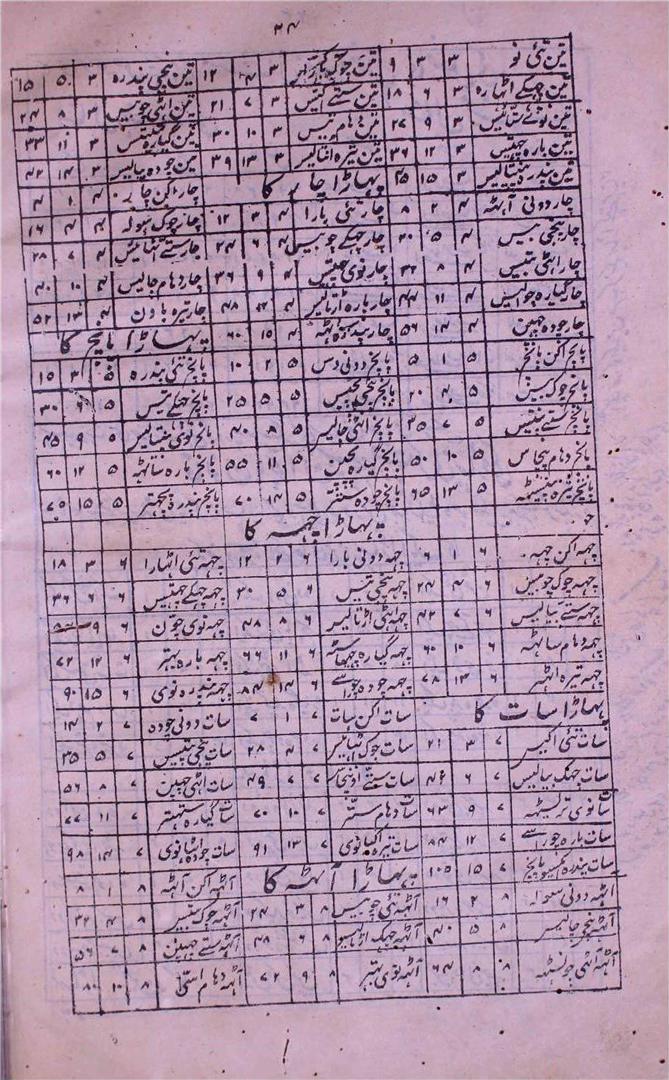 ۲۴
تین تئی نو ۳ ۳ ۹ تین چوک بارا ۳ ۴ ۱۲ تین پنجی پندرہ ۳ ۵ ۱۵
تین چھکے اٹہارہ ۳ ۶ ۱۸ تین ستے اکیس ۳ ۷ ۲۱ تین اٹہی چوبیس ۳ ۸ ۲۴
تین نوئے ستائیس ۳ ۹ ۲۷ تین دہام تیس ۳ ۱۰ ۳۰ تین گیارہ تینتیس ۳ ۱۱ ۳۳
تین بارہ چھتیس ۳ ۱۲ ۳۶ تین تیرہ انتالیس ۳ ۱۳ ۳۹ تین چودہ بیالیس ۳ ۱۴ ۴۲
تین پندرہ پینتالیس ۳ ۱۵ ۴۵ پہاڑا چار کا چار اکن چار ۴ ۱ ۴
چار دونی آٹہہ ۴ ۲ ۸ چار تئی بارا ۴ ۳ ۱۲ چار چوک سولہ ۴ ۴ ۱۶
چار پنجی بیس ۴ ۵ ۲۰ چار چھکے چوبیس ۴ ۶ ۲۴ چار ستے اٹہائیس ۴ ۷ ۲۸
چار اٹہی بتیس ۴ ۸ ۳۲ چار نوی چھتیس ۴ ۹ ۳۶ چار دہام چالیس ۴ ۱۰ ۴۰
چار گیارہ چوالیس ۴ ۱۱ ۴۴ چار بارہ اڑتالیس ۴ ۱۲ ۴۸ چار تیرہ باون ۴ ۱۳ ۵۲
چار چودہ چھپن ۴ ۱۴ ۵۶ چار پندرہ ساٹہہ ۴ ۱۵ ۶۰ پہاڑا پانچ کا
پانچ اکن پانچ ۵ ۱ ۵ پانچ دونی دس ۵ ۲ ۱۰ پانچ تئی پندرہ ۵ ۳ ۱۵
پانچ چوک بیس ۵ ۴ ۲۰ پانچ پنجی پچیس ۵ ۵ ۲۵ پانچ چھکے تیس ۵ ۶ ۳۰
پانچ ستے پینتیس ۵ ۷ ۳۵ پانچ اٹہی چالیس ۵ ۸ ۴۰ پانچ نوی پینتالیس ۵ ۹ ۴۵
پانچ دہام پچاس ۵ ۱۰ ۵۰ پانچ گیارہ پچپن ۵ ۱۱ ۵۵ پانچ بارہ ساٹہہ ۵ ۱۲ ۶۰
پانچ تیرہ پینسٹہہ ۵ ۱۳ ۶۵ پانچ چودہ ستر ۵ ۱۴ ۷۰ پانچ پندرہ پچہتر ۵ ۱۵ ۷۵
پہاڑا چہہ کا
چہہ اکن چہہ ۶ ۱ ۶ چہہ دونی بارا ۶ ۲ ۱۲ چہہ تئی اٹہارا ۶ ۳ ۱۸
چہہ چوک چوبیس ۶ ۴ ۲۴ چہہ پنجی تیس ۶ ۵ ۳۰ چہہ چھکے چھتیس ۶ ۶ ۳۶
چہہ ستے بیالیس ۶ ۷ ۴۲ چہہ اٹہی اڑتالیس ۶ ۸ ۴۸ چہہ نوی چون ۶ ۹ ۵۴
چہہ دہام ساٹہہ ۶ ۱۰ ۶۰ چہہ گیارہ چھیاسٹہہ ۶ ۱۱ ۶۶ چہہ بارہ بہتر ۶ ۱۲ ۷۲
چہہ تیرہ اٹہتر ۶ ۱۳ ۷۸ چہہ چودہ چوراسے ۶ ۱۴ ۸۴ چہہ پندرہ نوی ۶ ۱۵ ۹۰
پہاڑا سات کا سات اکن سات ۷ ۱ ۷ سات دونی چودہ ۷ ۲ ۱۴
سات تئی اکیس ۷ ۳ ۲۱ سات چوک اٹہائیس ۷ ۴ ۲۸ سات پنجی پینتیس ۷ ۵ ۳۵
سات چھک بیالیس ۷ ۶ ۴۲ سات ستے اونچاس ۷ ۷ ۴۹ سات اٹہی چھپن ۷ ۸ ۵۶
سات نوی ترسٹہہ ۷ ۹ ۶۳ سات دہام ستر ۷ ۱۰ ۷۰ سات گیارہ ستہتر ۷ ۱۱ ۷۷
سات بارہ چوراسے ۷ ۱۲ ۸۴ سات تیرہ اکیانوی ۷ ۱۳ ۹۱ سات چودہ اٹہانوی ۷ ۱۴ ۹۸
سات پندرہ یکسو پانچ ۷ ۱۵ ۱۰۵ پہاڑا آٹہہ کا آٹہہ اکن آٹہہ ۸ ۱ ۸
آٹہہ دونی سولہ ۸ ۲ ۱۶ آٹہہ تئی چوبیس ۸ ۳ ۲۴ آٹہہ چوک بتیس ۸ ۴ ۳۲
آٹہہ پنجے چالیس ۸ ۵ ۴۰ آٹہہ چھک اڑتالیس ۸ ۶ ۴۸ آٹہہ ستے چھپن ۸ ۷ ۵۶
آٹہہ اٹہی چونسٹہہ ۸ ۸ ۶۴ آٹہہ نوی بہتر ۸ ۹ ۷۲ آٹہہ دہام اسی ۸ ۱۰ ۸۰